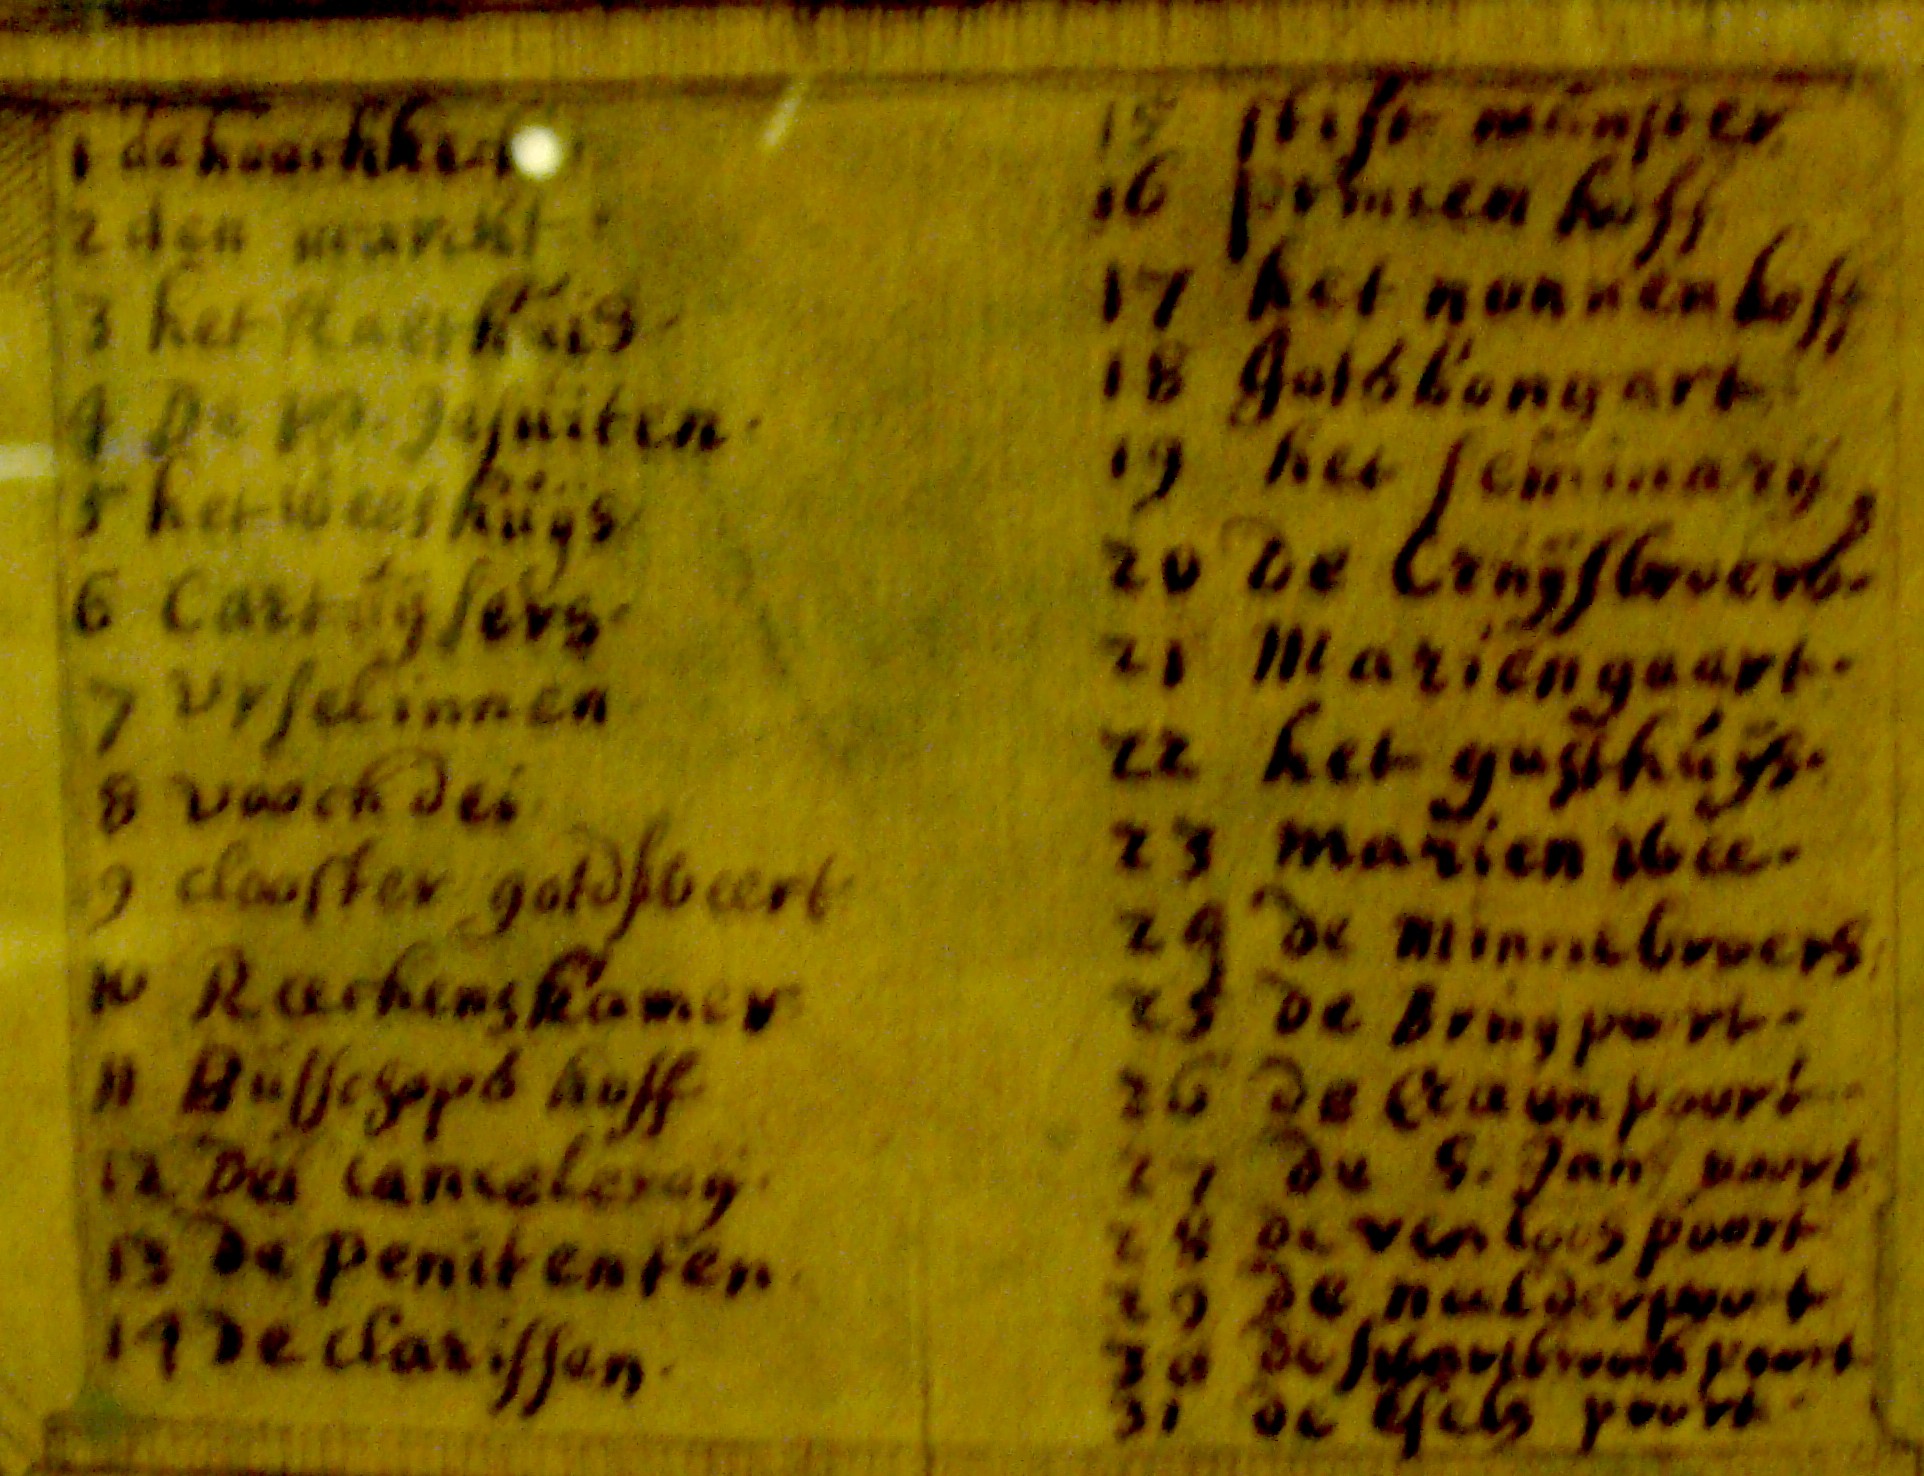 1 de
2 den marckt
3 het Raethuis
4 De PP. Jesuiten.
5 het weeshuijs
6 Cartuijsers.
7 Vrselinnen
8 Vooch dei
9 clooster goldsbeert
10 Reeckenskamer
11 Busschops hoff
12 Dei cancelereij.
13 De penitenten.
14 De clarissen.
15 stift munster
16 prinsen hoff
17 het nonnen hoff
18 Goldbongart
19 het seminarij
20 De Cruijsbroers.
21 Mariengaart.
22 het gasthuijs.
23 Marien wee.
24 de Minnebroers
25 de Brugpoort.
26 de Craenpoort
27 de S. Jan poort
28 de venloes poort
29 de neelderpoort
30 de poort
31 de Esels poort